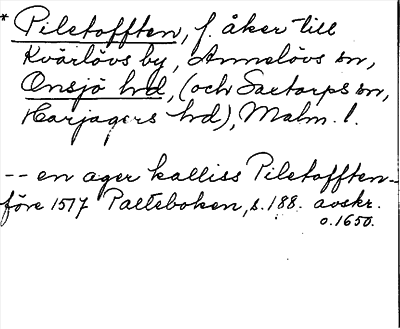 * Piletofften, f. åker till
Kvärlövs by, Annelövs sn,
Onsjö hd, (och Saxtorps sn,
Harjagers hd), Malm. l.
-- en ager kalliss Piletofften--
före 1517 Palteboken, s. 188. avskr.
o. 1650.